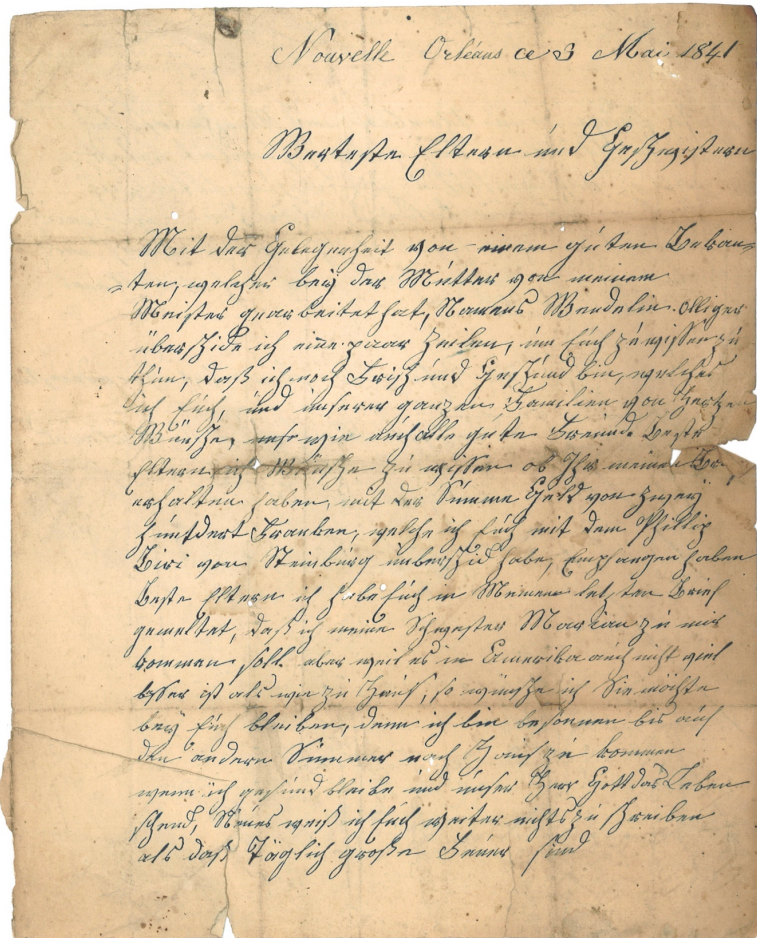 Nouvelle Orléans ce 3 Mai 1841
Werteste Eltern und Geschwistern
Mit der Gelegenheit von einem guten Bekan=
=ten, welcher bey der Mutter von meinem
Meister gearbeitet hat, Namens Wendelin Olliger
überschide ich eine paar Zeilen, um Euch zu wissen zu
thun, daß ich noch Frisch und Geschund bin, welches
ich Euch, und unserer ganzen Familien von Hertzen
Wünsche, wie auch alle gute Freund Beste
Eltern ich Wünsche zu wissen ob Ihr meinen
erhalten haben, mit der Summe Geld von zwey
hundert Franken, welche ich Euch mit dem Phillip
Biri von Steinburg überschid habe, Empfangen haben
Beste Eltern ich habe Euch in Meinem letzten Brief
gemeltet, daß ich meine Schwester Marian zu mir
kommen soll aber weil es in Amerika auch nicht viel
besser ist als wie zu Haus, so wünsche ich Sie möchte
bey Euch bleiben, denn ich bin besonnen bis auf
den andern Summer nach Haus zu kommen
wenn ich gesund bleibe und unser Herr Gott das Leben
schend, Neues weiß ich Euch weiter nichts zu schreiben
als daß Täglich große Feuer sind